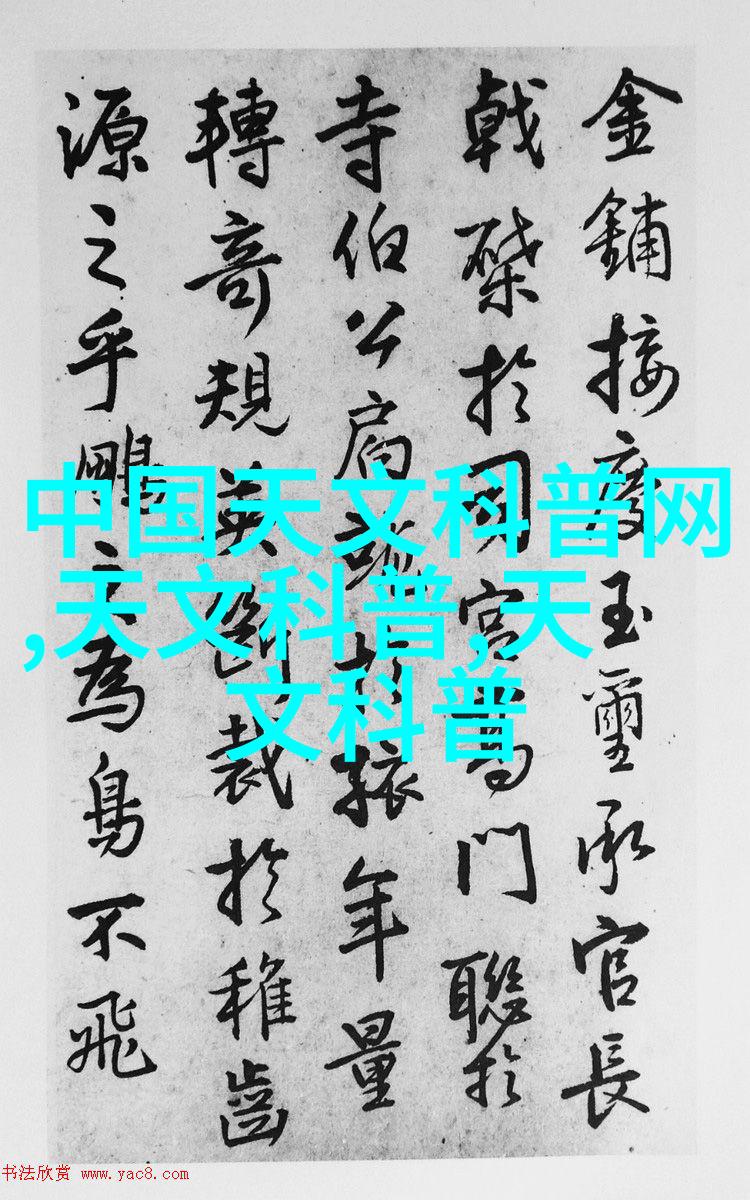 金鋪接慶玉璽承官長
戟棨於國宮高門聯於
寺伯公於年量
轉奇規英斷裁於稚齒
源之乎鵬之為鳥不飛
中国天文科普网
,天文科普,天
文科普
书法欣赏 www.yac8.com